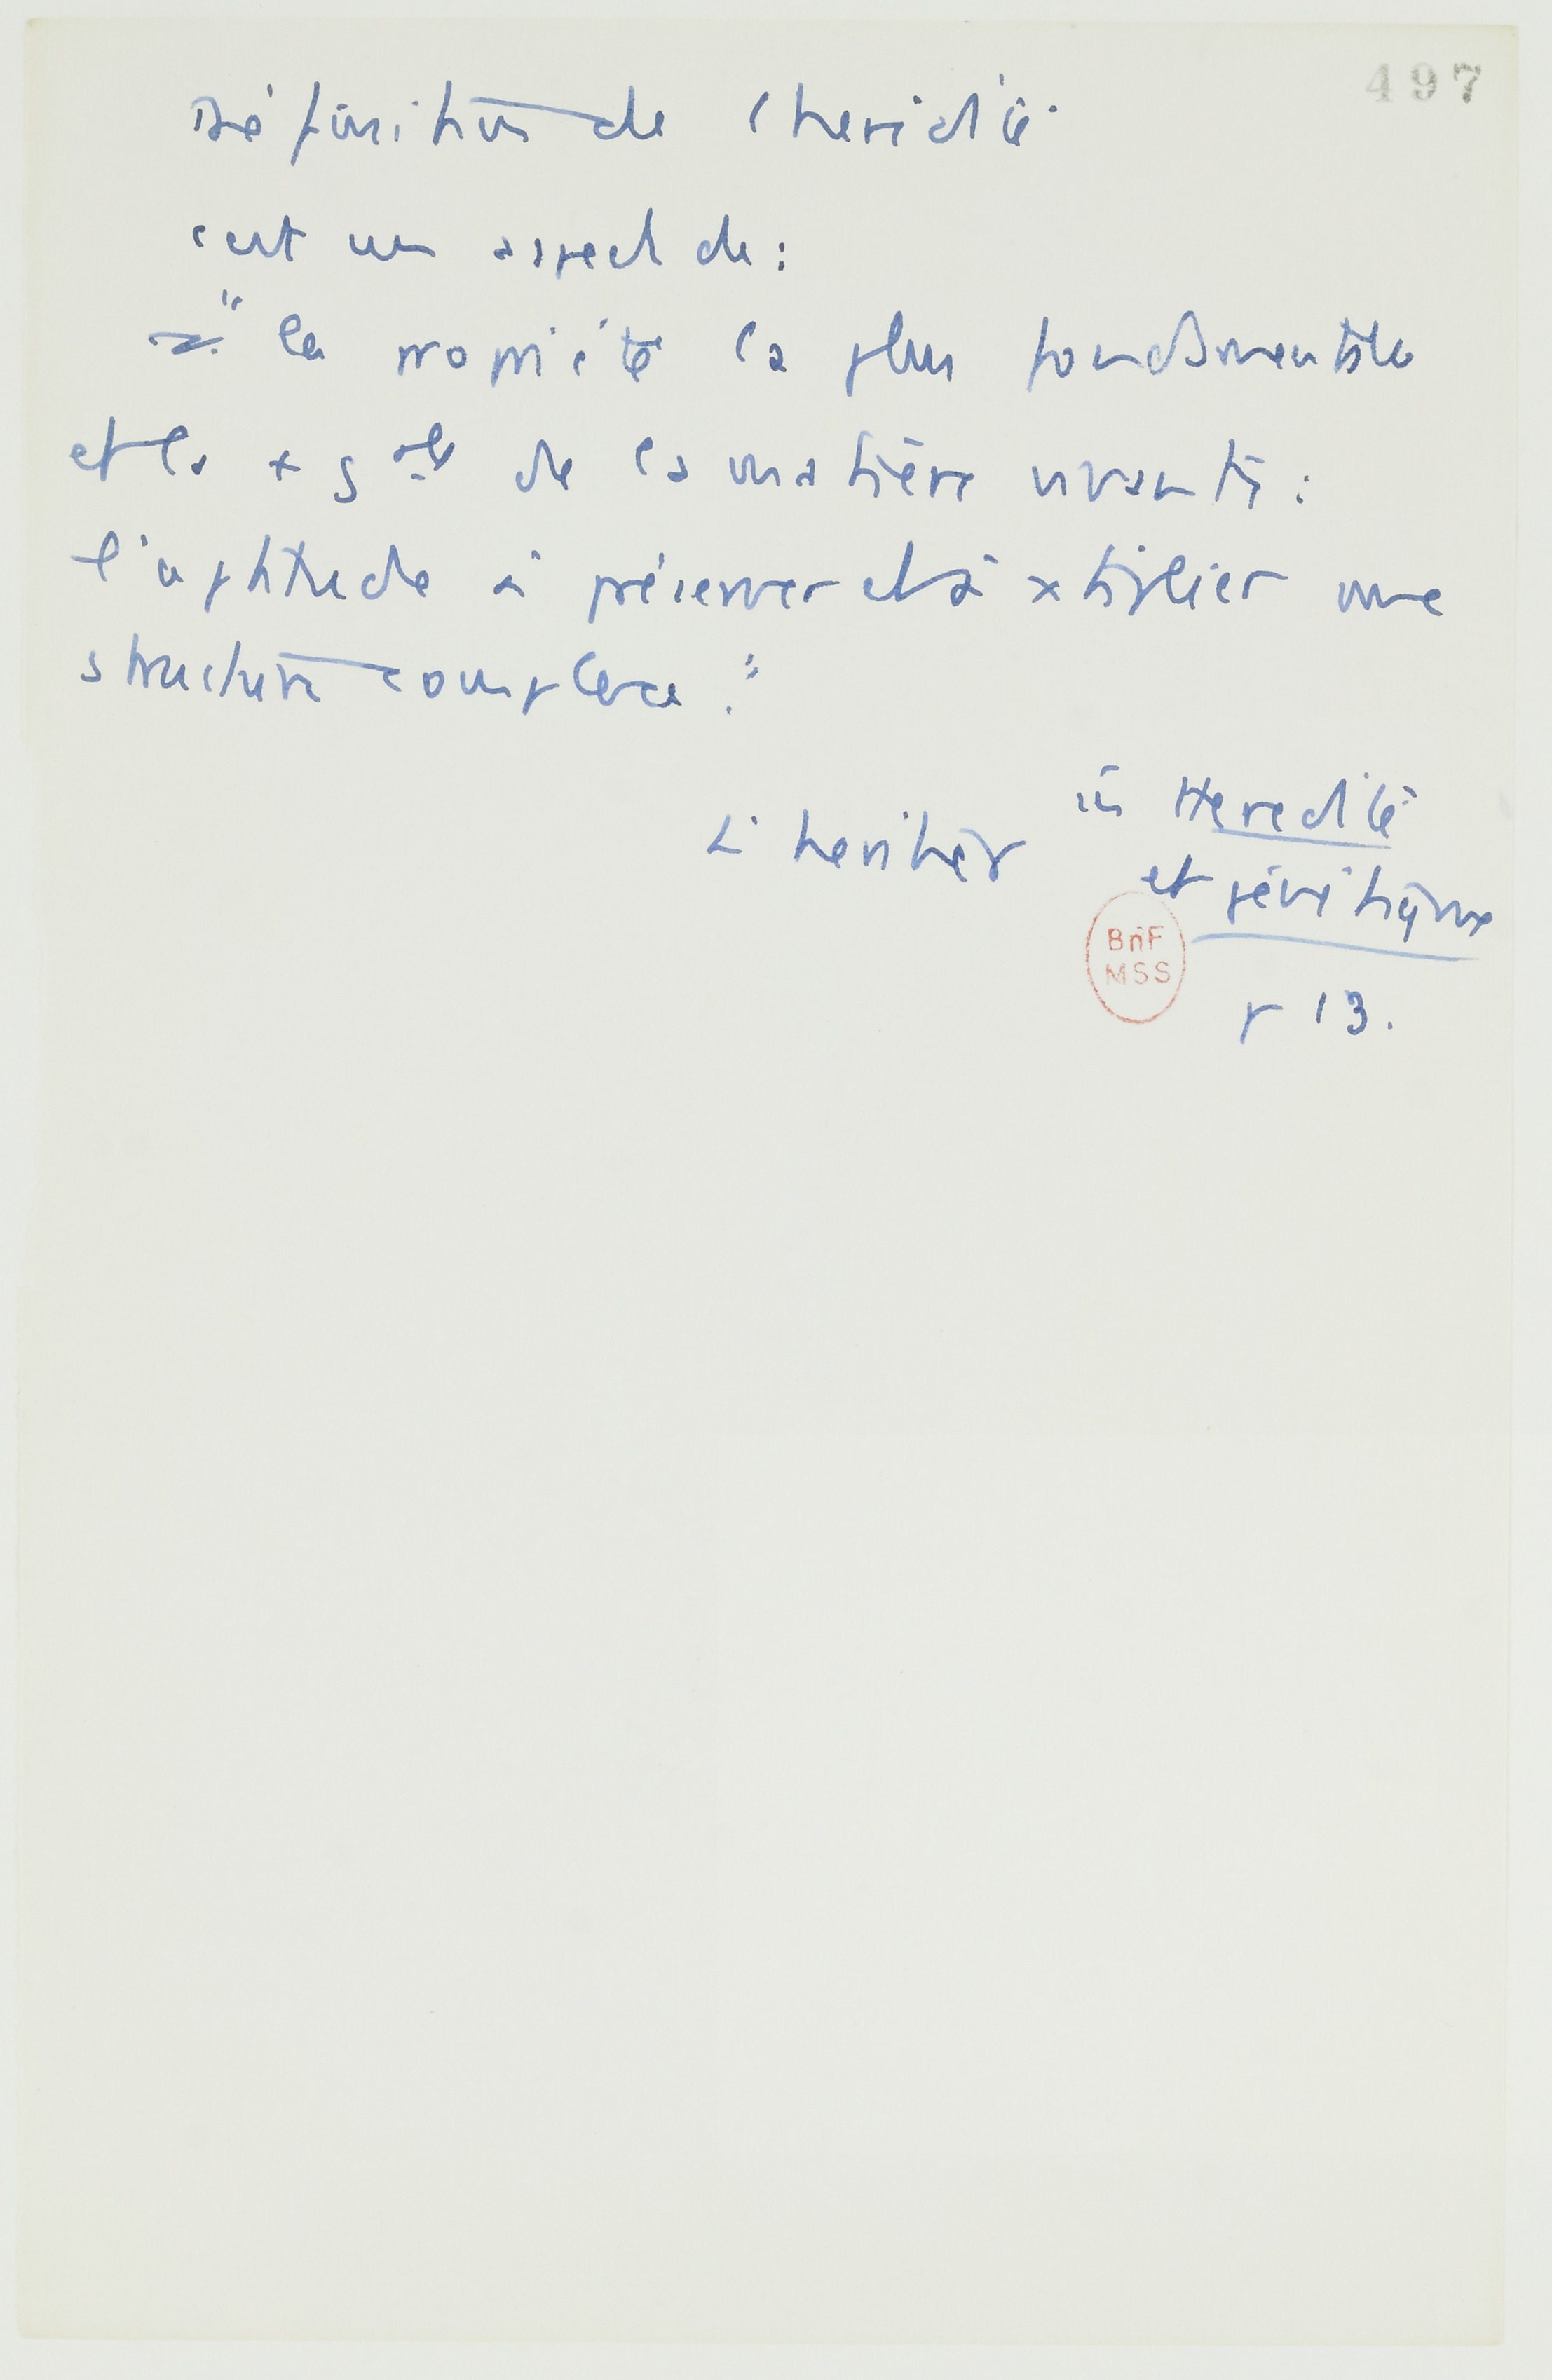 497
Définition de l'hérédité
c'est un aspect de :
" la propriété la plus fondamentale
et la + g ale de la matière vivante :
l'aptitude à préserver et à xtiplier une
structure complexe ."
L'héritier in Heredité
et génétique
p 13.
BnF
MSS